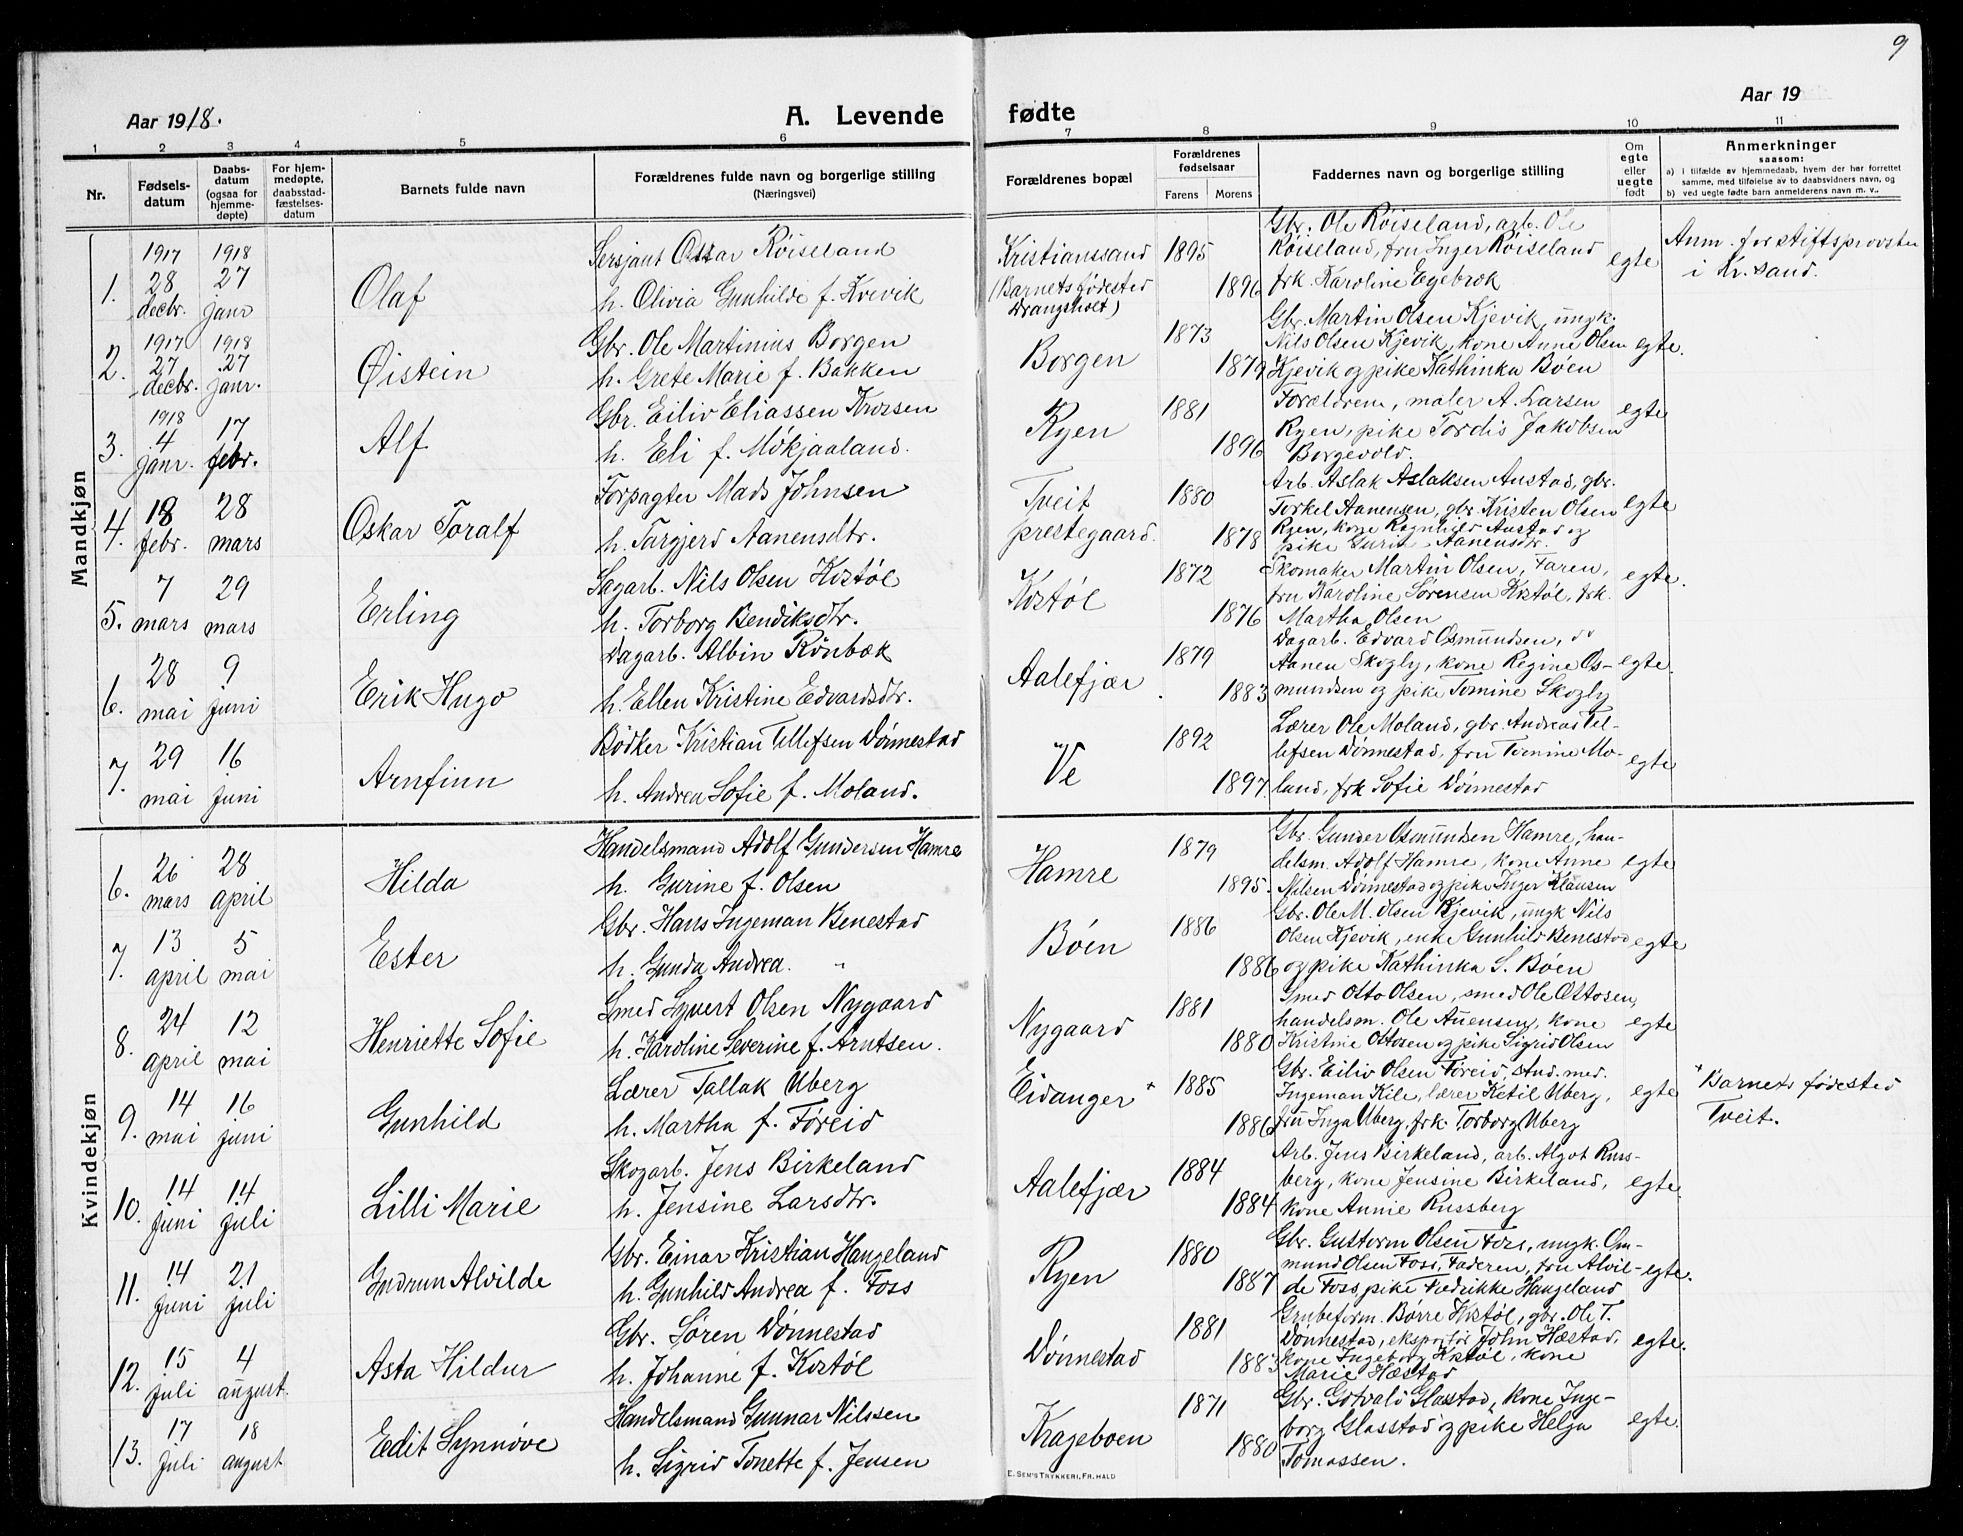 9
Aar 1918.
A. Levende fødte
Aar 19
1 2 3 4 5 6 7 8 9 10 11
Nr.
Fødsels-
datum
Daabs-
datum
(ogsaa for
hjemme-
døpte)
For hjem-
medøpte,
daabsstad-
fæstelses-
datum
Barnets fulde navn
Forældrenes fulde navn og borgerlige stilling
(Næringsvei)
Forældrenes bopæl
Forældrenes
fødselsaar
Farens Morens
Faddernes navn og borgerlige stilling
Om
egte
eller
uegte
født
Anmerkninger
saasom:
a) i tilfælde av hjemmedaab, hvem der har forrettet
samme, med tilføielse av to daabsvidners navn, og
b) ved uegte fødte barn anmelderens navn m. v..
Mandkjøn
1.
1917
28
decbr.
1918
27
janr
Olaf
Sersjant Oskar Røiseland
h. Olivia Gunhilde f. Kvevik
Kristianssand
(Barnets fødested
Drangsholt)
1895
1896
Gbr. Ole Røiseland, arb. Ole
Røiseland, fru Inger Røiseland
frk. Karoline Egebrok
egte
Anm. for stiftsprovsten
i Kr.sand.
2.
1917
27
decbr.
1918
27
janr.
Øistein
Gbr. Ole Martinius Borgen
h. Grete Marie f. Bakken
Borgen
1873
1879
Gbr. Martin Olsen Kjevik, ungk.
Nils Olsen Kjevik, kone Anne Olsen
Kjevik og pike Kathinka Bøen
egte.
3.
1918
4
janr.
17
febr.
Alf
Gbr. Eiliv Eliassen
h. Eli f. Møkjaaland.
Ryen
1881
1896
Forældrene, maler A. Larsen
Ryen, pike Tordis Jakobsen
Borgevold.
egte
4.
18
febr.
28
mars
Oskar Toralf
Forpagter Mads Johnsen
h. Targjerd Aanensdtr.
Tveit
prestegaard.
1880
1878
Arb. Aslak Aslaksen Austad, gbr.
Torkel Aanensen, gbr. Kristen Olsen
Ryen, kone Ragnhild Austad og
pike Gurit Aanensdtr.
egte
5.
7
mars
29
mars
Erling
Sagarb. Nils Olsen Kostøl
h. Torborg Bendiksdtr.
Kostøl
1872
1876
Skomaker Martin Olsen, Faren,
fru Karoline Sørensen Kostøl, frk.
Martha Olsen
egte.
6.
28
mai
9
juni
Erik Hugo
Dagarb. Albin Rønbæk
h. Ellen Kristine Edvardsdtr.
Aalefjær.
1879
1883
Dagarb. Edvard Osmundsen, do
Aanen Skogly, kone Regine Os-
mundsen og pike Tomine Skogly
egte
7.
29
mai
16
juni
Arnfinn
Bødker Kristian Tellefsen Dønnestad
h. Andrea Sofie f. Moland.
Ve
1892
1897
Lærer Ole Moland, gbr. Andreas Tel-
lefsen Dønnestad, fru Tomine Mo-
land, frk Sofie Dønnestad
egte
Kvindekjøn
6.
26
mars
28
april
Hilda
Handelsmand Adolf Gundersen Hamre
h. Gurine f. Olsen
Hamre
1879
1895.
Gbr. Gunder Osmundsen Hamre, han-
delsm. Adolf Hamre, kone Anne
Nilsen Dønnestad og pike Inger Klausen
egte
7.
13
april
5
mai
Ester
Gbr. Hans Ingeman Benestad
h. Gunda Andrea "
Bøen
1886
1886
Gbr. Ole M. Olsen Kjevik, ungk Nils
Olsen Kjevik, enke Gunhild Benestad
og pike Kathinka S. Bøen
egte
8.
24
april
12
mai
Henriette Sofie
Smed Syvert Olsen Nygaard
h. Karoline Severine f. Arntsen.
Nygaard
1881
1880
Smed Otto Olsen, smed Ole Ottosen,
handelsm. Ole Auensen, kone
Kristine Ottosen og pike Sigrid Olsen
egte
9.
14
mai
16
juni
Gunhild
Lærer Tallak Uberg
h. Martha f. Føreid
Eidanger +
1885
1886
Gbr. Eiliv Olsen Føreid, stud. med.
Ingeman Kile, lærer Ketil Uberg,
fru Inga Uberg, frk. Torborg Uberg
egte
+ Barnets fødested
Tveit.
10.
14
juni
14
juli
Lilli Marie
Skogarb. Jens Birkeland
h. Jensine Larsdtr.
Aalefjær
1884
1884
Arb. Jens Birkeland, arb. Algot Russ-
berg, kone Jensine Birkeland,
kone Annie Russberg
egte.
11.
14
juni
21
juli
Gudrun Alvilde
Gbr. Einar Kristian Haugeland
h. Gunhild Andrea f. Foss
Ryen
1880
1887
Gbr. Gustorm Olsen Foss, ungk. Om-
mund Olsen Foss, Faderen, fru Alvil-
de Foss pike Fredrikke Haugeland
egte.
12.
15
juli
4
august.
Asta Hildur
Gbr. Søren Dønnestad
h. Johanne f. Kostøl
Dønnestad
1881
1883
Grubeform. Børre Kostøl, gbr. Ole T.
Dønnestad, ekspeditør John Hæstad,
kone Ingeborg Kostøl, kone
Marie Hæstad
egte.
13.
17
juli
18
august
Edit Synnøve
Handelsmand Gunnar Nilssen
h. Sigrid Tonette f. Jensen
Krageboen
1871
1880
Gbr. Gotvald Glastad, kone Inge-
borg Glasstad og pike Helga
Tomassen.
egte.
E. SEM'S TRYKKERI, FR. HALD